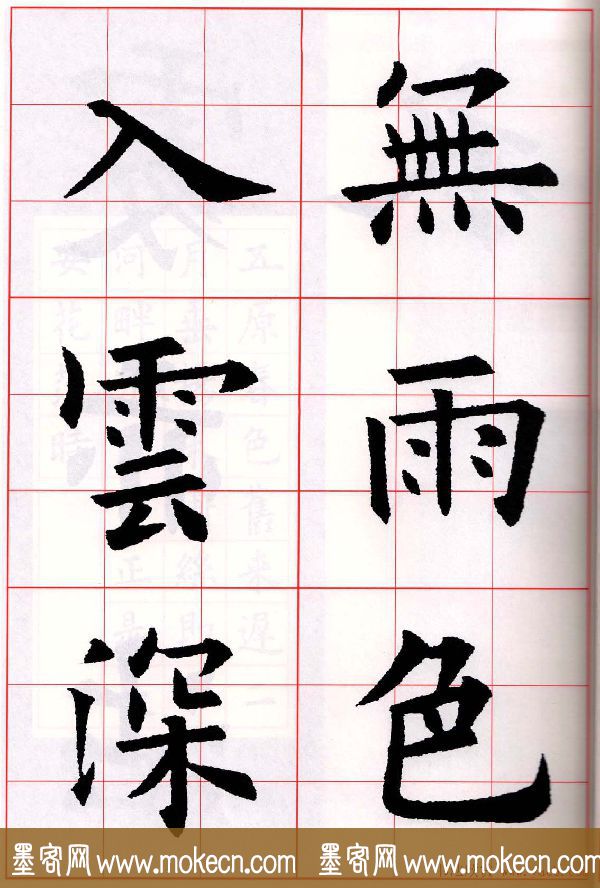 無雨色
入雲深
墨客网 www.mokecn.com 墨客网 www.mokecn.com